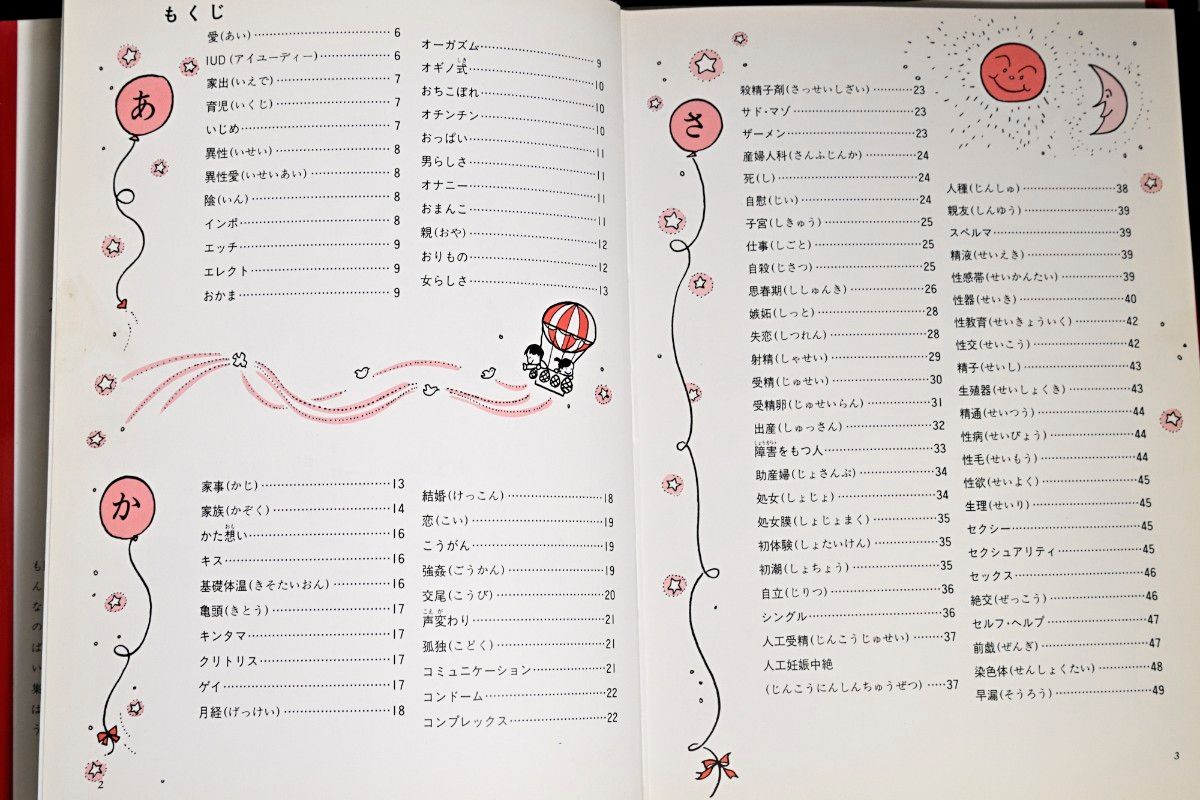 もくじ
あ
愛(あい)…6
IUD(アイユーディー)…6
家出(いえで)…7
育児(いくじ)…7
いじめ…7
異性(いせい)…8
異性愛(いせいあい)…8
陰(いん)…8
インポ…8
エッチ…9
エレクト…9
おかま…9
オーガズム…9
オギノ式(しき)…10
おちこぼれ…10
オチンチン…10
おっぱい…11
男らしさ…11
オナニー…11
おまんこ…11
親(おや)…12
おりもの…12
女らしさ…13
か
家事(かじ)…13
家族(かぞく)…14
かた想(おも)い…16
キス…16
基礎体温(きそたいおん)…16
亀頭(きとう)…17
キンタマ…17
クリトリス…17
ゲイ…17
月経(げっけい)…18
結婚(けっこん)…18
恋(こい)…19
こうがん…19
強姦(ごうかん)…19
交尾(こうび)…20
声変(こえが)わり…21
孤独(こどく)…21
コミュニケーション…21
コンドーム…22
コンプレックス…22
2
さ
殺精子剤(さっせいしざい)…23
サド・マゾ…23
ザーメン…23
産婦人科(さんふじんか)…24
死(し)…24
自慰(じい)…24
子宮(しきゅう)…25
仕事(しごと)…25
自殺(じさつ)…25
思春期(ししゅんき)…26
嫉妬(しっと)…28
失恋(しつれん)…28
射精(しゃせい)…29
受精(じゅせい)…30
受精卵(じゅせいらん)…31
出産(しゅっさん)…32
障害(しょうがい)をもつ人…33
助産婦(じょさんぷ)…34
処女(しょじょ)…34
処女膜(しょじょまく)…35
初体験(しょたいけん)…35
初潮(しょちょう)…35
自立(じりつ)…36
シングル…36
人工受精(じんこうじゅせい)…37
人工妊娠中絶
(じんこうにんしんちゅうぜつ)…37
人種(じんしゅ)…38
親友(しんゆう)…39
スペルマ…39
精液(せいえき)…39
性感帯(せいかんたい)…39
性器(せいき)…40
性教育(せいきょういく)…42
性交(せいこう)…42
精子(せいし)…43
生殖器(せいしょくき)…43
精通(せいつう)…44
性病(せいびょう)…44
性毛(せいもう)…44
性欲(せいよく)…45
生理(せいり)…45
セクシー…45
セクシュアリティ…45
セックス…46
絶交(ぜっこう)…46
セルフ・ヘルプ…47
前戯(ぜんぎ)…47
染色体(せんしょくたい)…48
早漏(そうろう)…49
3